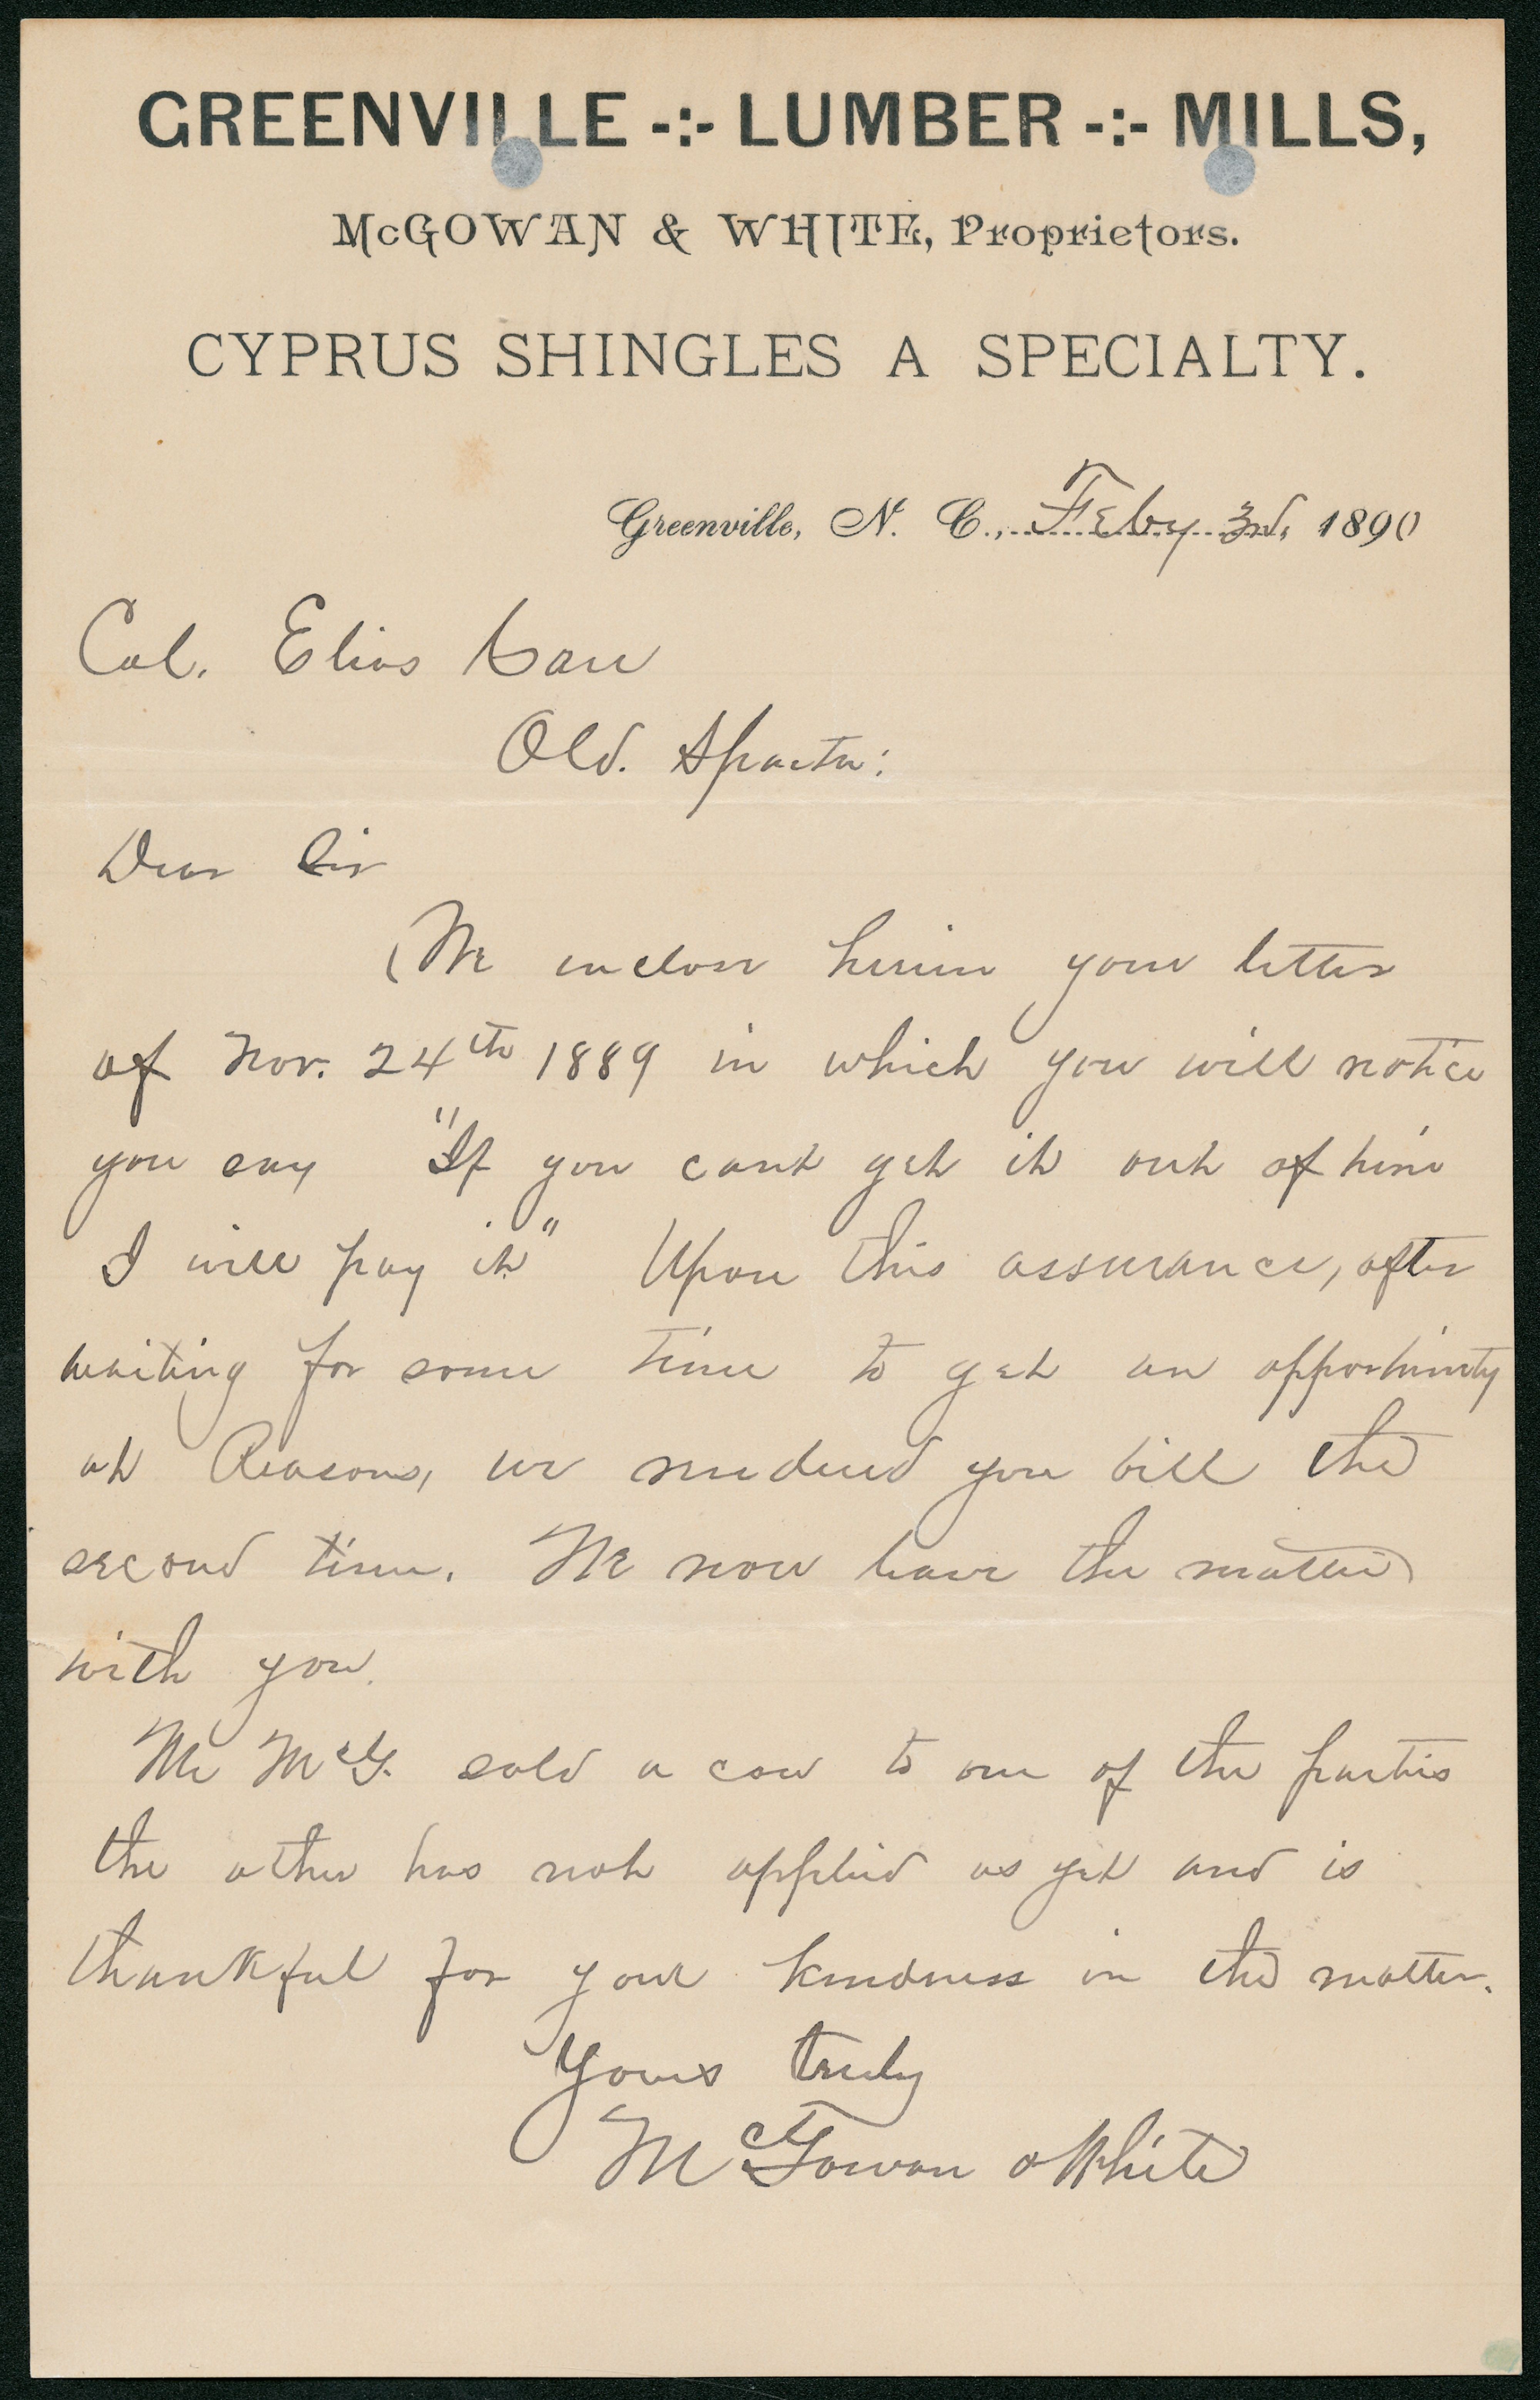 GREENVILLE -:- LUMBER -:- MILLS,
McGOWAN & WHITE, Proprietors.
CYPRUS SHINGLES A SPECIALTY.
Greenville, N. C., Feby 3rd, 1890
Col. Elias Carr
Old. Sparta:
Dear Sir
We inclose herein your letter
of Nov. 24th 1889 in which you will notice
you say "If you cant get it out of him
I will pay it" Upon this assurance, after
waiting for some time to get an opportunity
at Reasons, we rendered you bill the
second time. We now leave the matter
with you.
Mr McG. sold a cow to one of the parties
the other has not applied as yet and is
thankful for your kindness in the matter.
Yours truly
McGowan & White